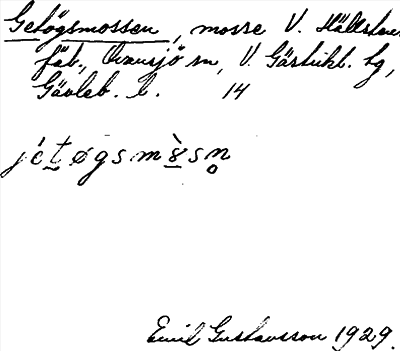 Getögsmossen, mosse V. Hällsten
fäb., Ovansjö sn, V. Gästrikl. tg,
Gävleb. l. 14
jétøgsmòsn
Emil Gustavsson 1929.